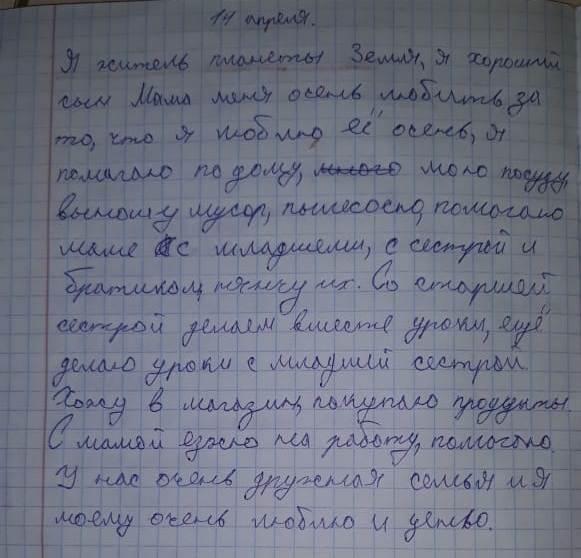 14 апреля.
Я житель планеты Земля, я хороший
сын Мама меня осень любить за
то, что я люблю её осень, я
помагаю по дому, много мою посуду,
выношу мусор, пылесосю, помогаю
маме с младшеми, с сестрой и
братиком, нянчу их. Со старшей
сестрой делаем вместе уроки, ещё
делаю уроки с младшей сестрой.
Хожу в магазин, покупаю продукты.
С мамой езжю на работу, помогаю.
У нас очень дружная семья и я
моему очень люблю и ценю.